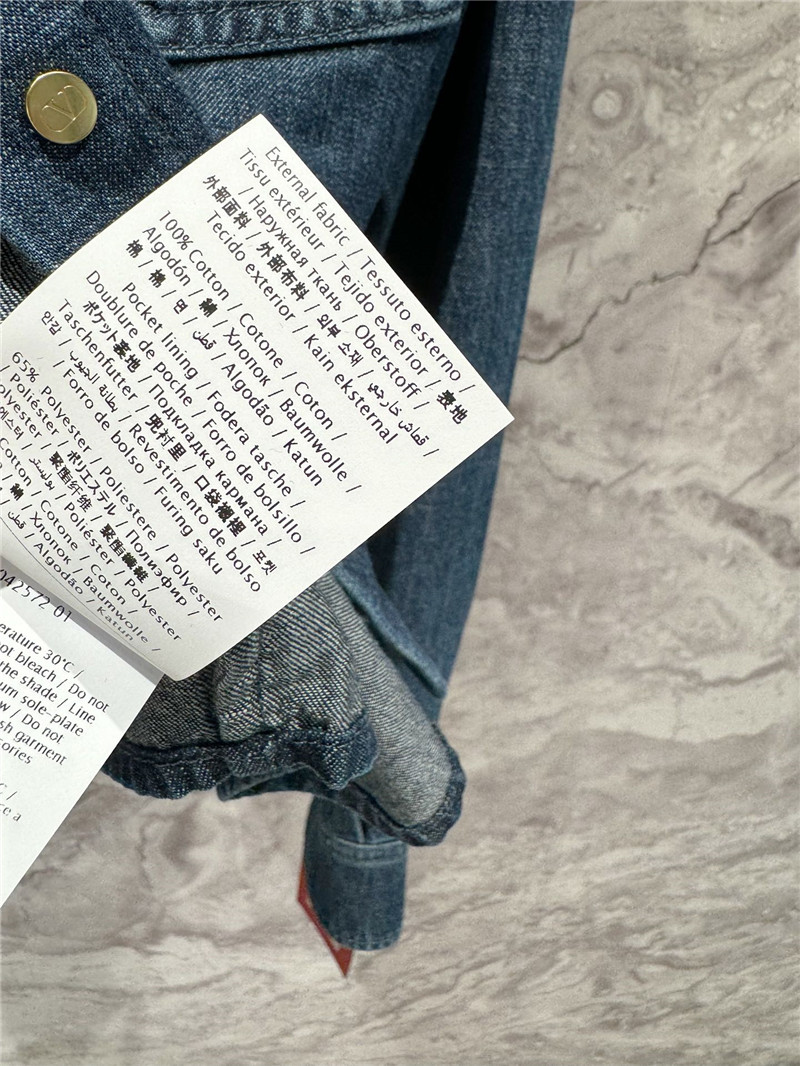 V
External fabric / Tessuto esterno /
Tissu extérieur / Tejido exterior / 表地
/ Наружная ткань / Oberstoff /
外部面料 / 外部布料 / 외부 소재 / قماش خارجي /
Tecido exterior / Kain eksternal
100% Cotton / Cotone / Coton /
Algodón / 綿 / Хлопок / Baumwolle /
棉 / 棉 / 면 / قطن / Algodão / Katun
Pocket lining / Fodera tasche /
Doublure de poche / Forro de bolsillo /
ポケット裏地 / Подкладка кармана /
Taschenfutter / 兜衬里 / 口袋襯裡 / 포켓
안감 / بطانة الجيوب / Revestimento de bolso
/ Forro de bolso / Furing saku
65% Polyester / Poliestere / Polyester
/ Poliéster / ポリエステル / Полиэфир /
Polyester / 聚酯纤维 / 聚酯纖維 /
بوليستر / Poliéster / Polyester
Cotton / Cotone / Coton /
綿 / Хлопок / Baumwolle /
قطن / Algodão / Katun
042572 01
30°C /
bleach / Do not
the shade / Line
sole-plate
/ Do not
garment